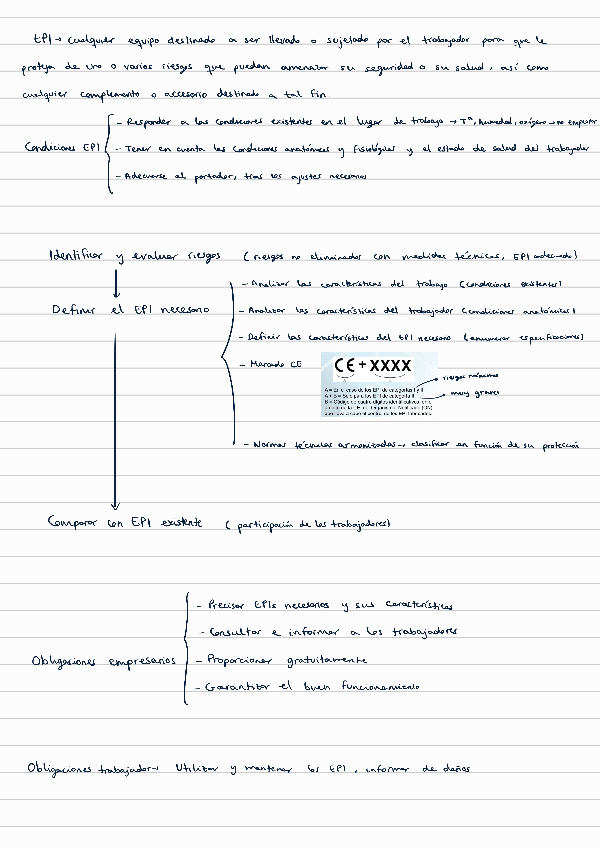 EPI → cualquier equipo destinado a ser llevado o sujetado por el trabajador para que le
proteja de uno o varios riesgos que puedan amenazar su seguridad o su salud, así como
cualquier complemento o accesorio destinado a tal fin
Condiciones EPI
- Responder a las condiciones existentes en el lugar de trabajo → Tª, humedad, oxígeno → no empeorar
- Tener en cuenta las condiciones anatómicas y fisiológicas y el estado de salud del trabajador
- Adecuarse al portador, tras los ajustes necesarios
Identificar y evaluar riesgos (riesgos no eliminados con medidas técnicas, EPI adecuado)
Definir el EPI necesario
- Analizar las características del trabajo (condiciones existentes)
- Analizar las características del trabajador (condiciones anatómicas)
- Definir las características del EPI necesario (enumerar especificaciones)
- Marcado CE
CE + XXXX
A = En el caso de los EPI de categorías I y II
A + B = Solo para los EPI de categoría III
B = Código de cuatro dígitos identificativos, en el
riesgos mínimos
muy graves
- Normas técnicas armonizadas → clasificar en función de su protección
Comparar con EPI existente (participación de los trabajadores)
Obligaciones empresarios
- Precisar EPIs necesarios y sus características
- Consultar e informar a los trabajadores
- Proporcionar gratuitamente
- Garantizar el buen funcionamiento
Obligaciones trabajador → Utilizar y mantener los EPI, informar de daños